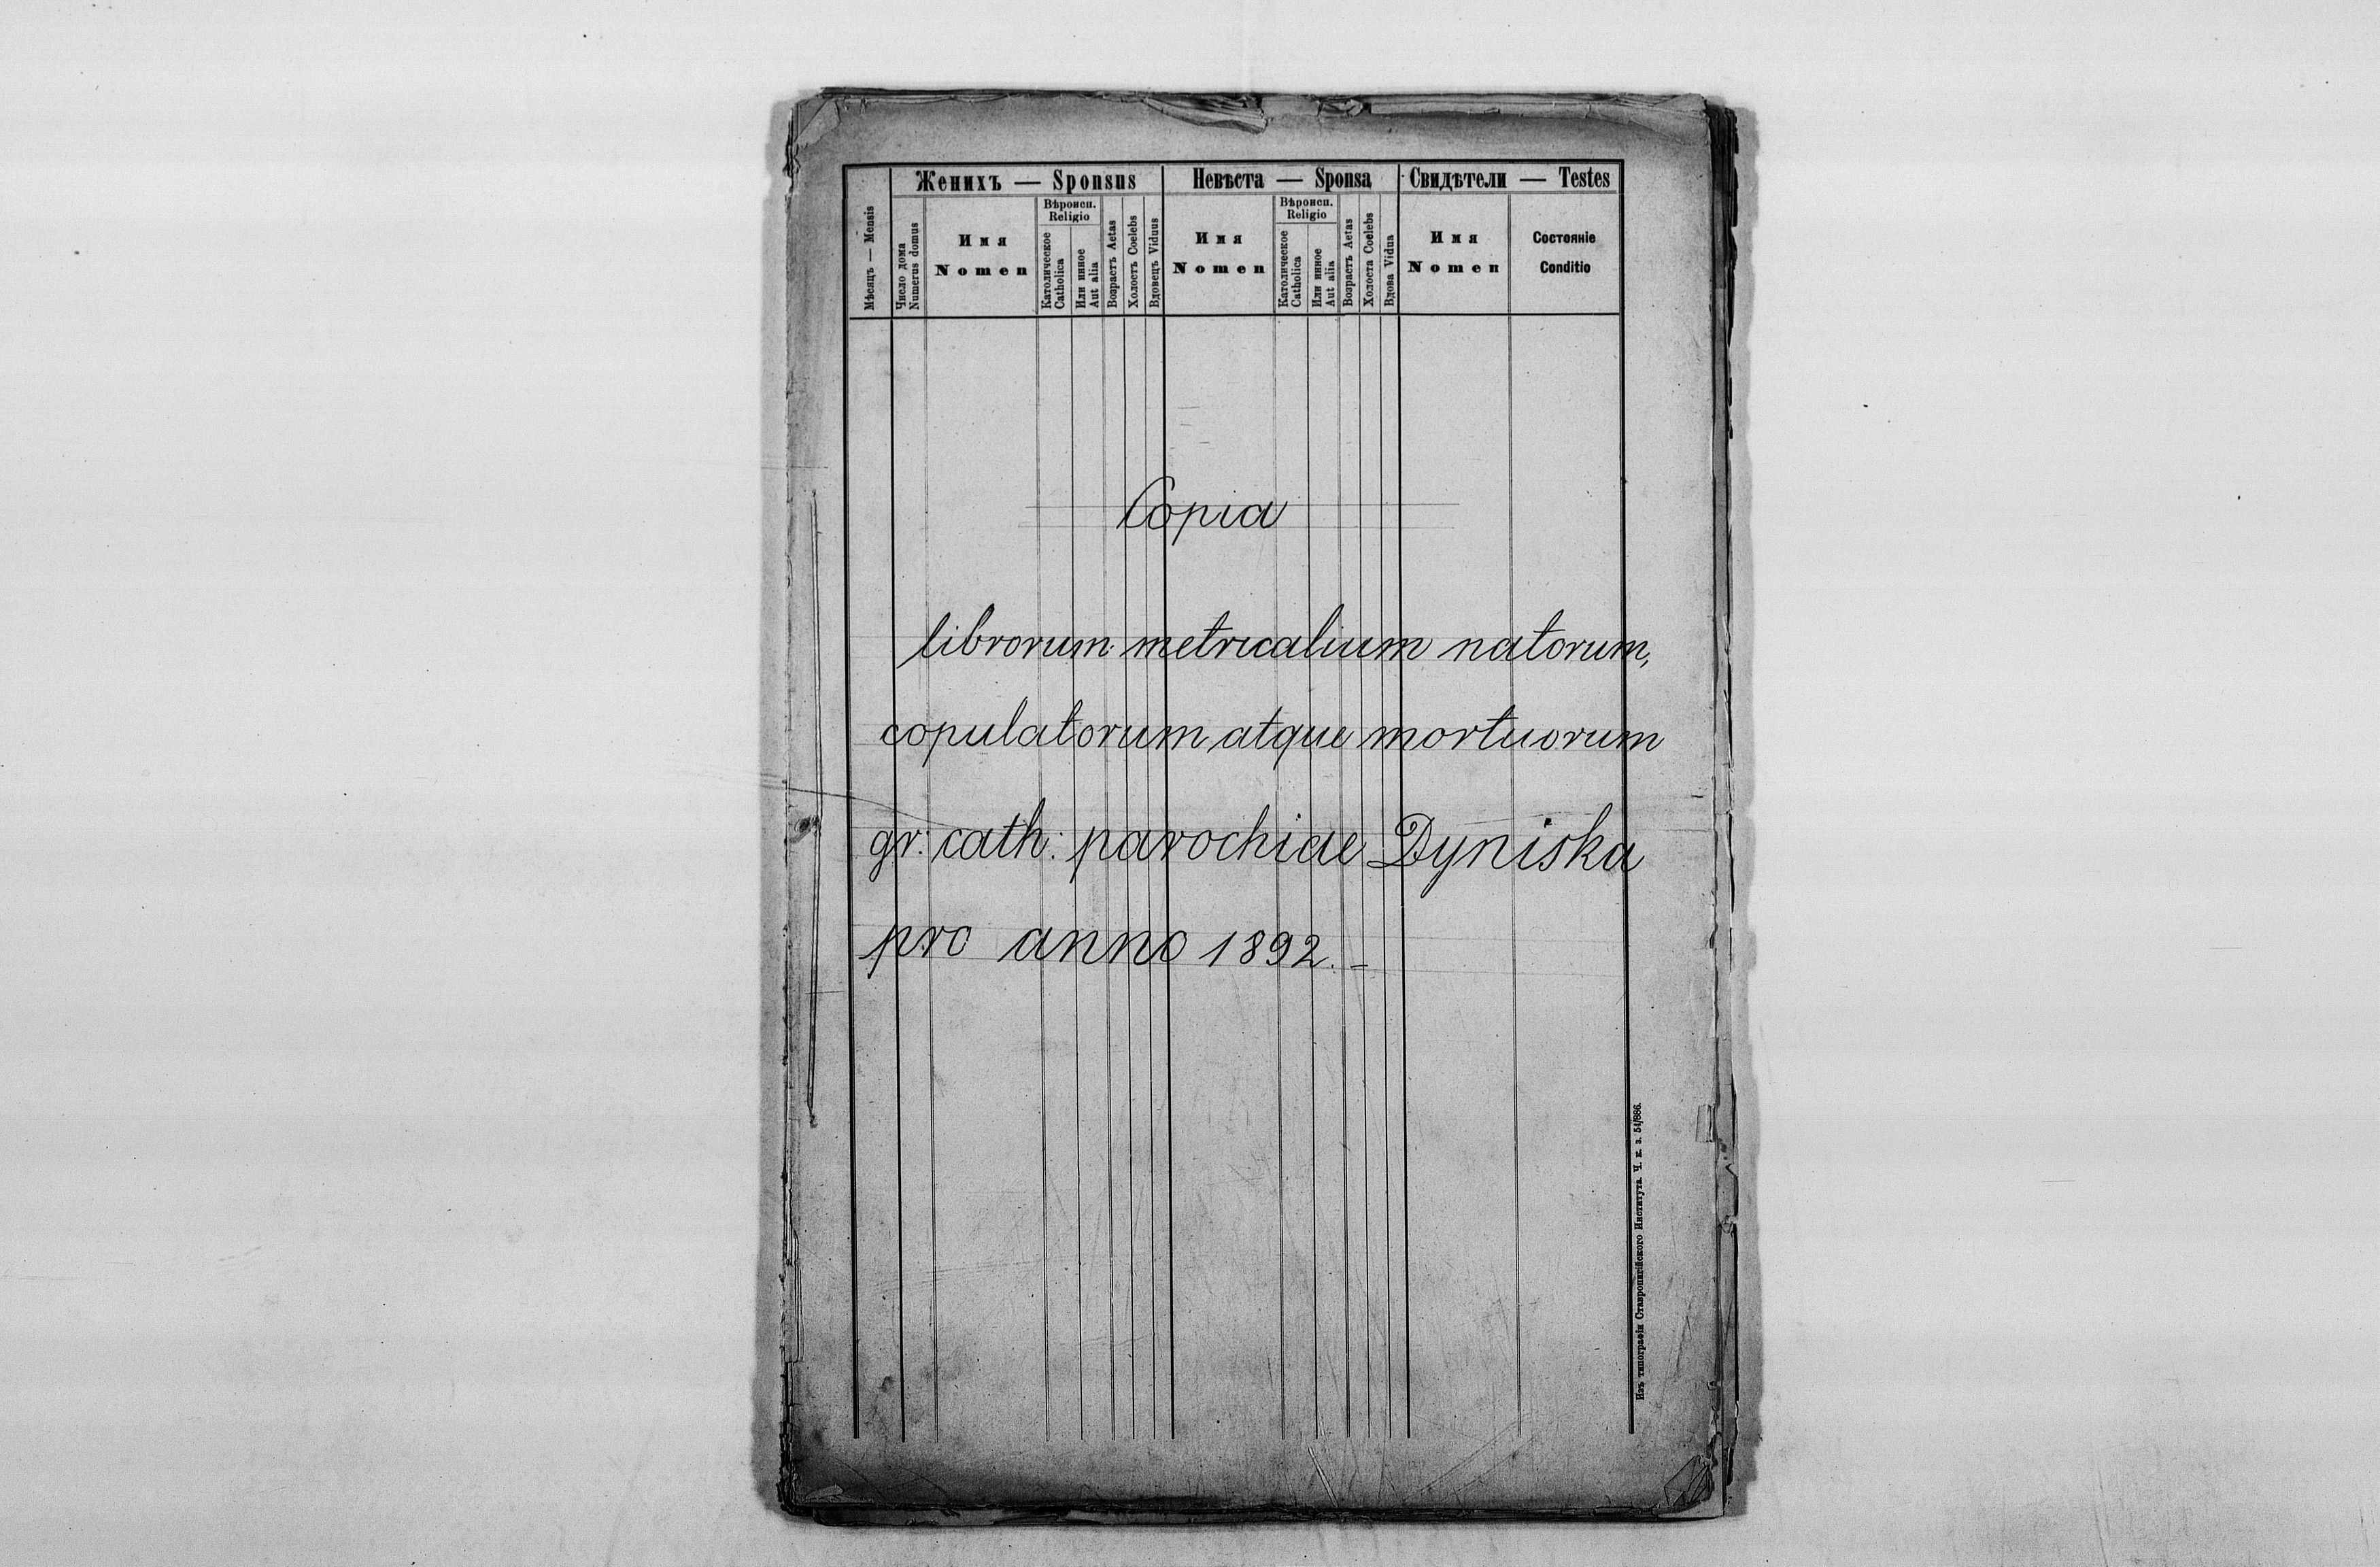 Женихъ — Sponsus
Невѣста — Sponsa
Свидѣтели — Testes
Мѣсяцъ — Mensis
Число дома
Numerus domus
Имя
Nomen
Вѣроисп.
Religio
Католическое
Catholica
Или инное
Aut alia
Возрастъ Aetas
Холостъ Coelebs
Вдовецъ Viduus
Имя
Nomen
Вѣроисп.
Religio
Католическое
Catholica
Или инное
Aut alia
Возрастъ Aetas
Холоста Coelebs
Вдова Vidua
Имя
Nomen
Состояніе
Conditio
Copia
librorum metricalium natorum,
copulatorum atque mortuorum
gr: cath: parochiae Dyniska
pro anno 1892. –
Изъ типографіи Ставропигійского Института. Ч. к. з. 51/886.